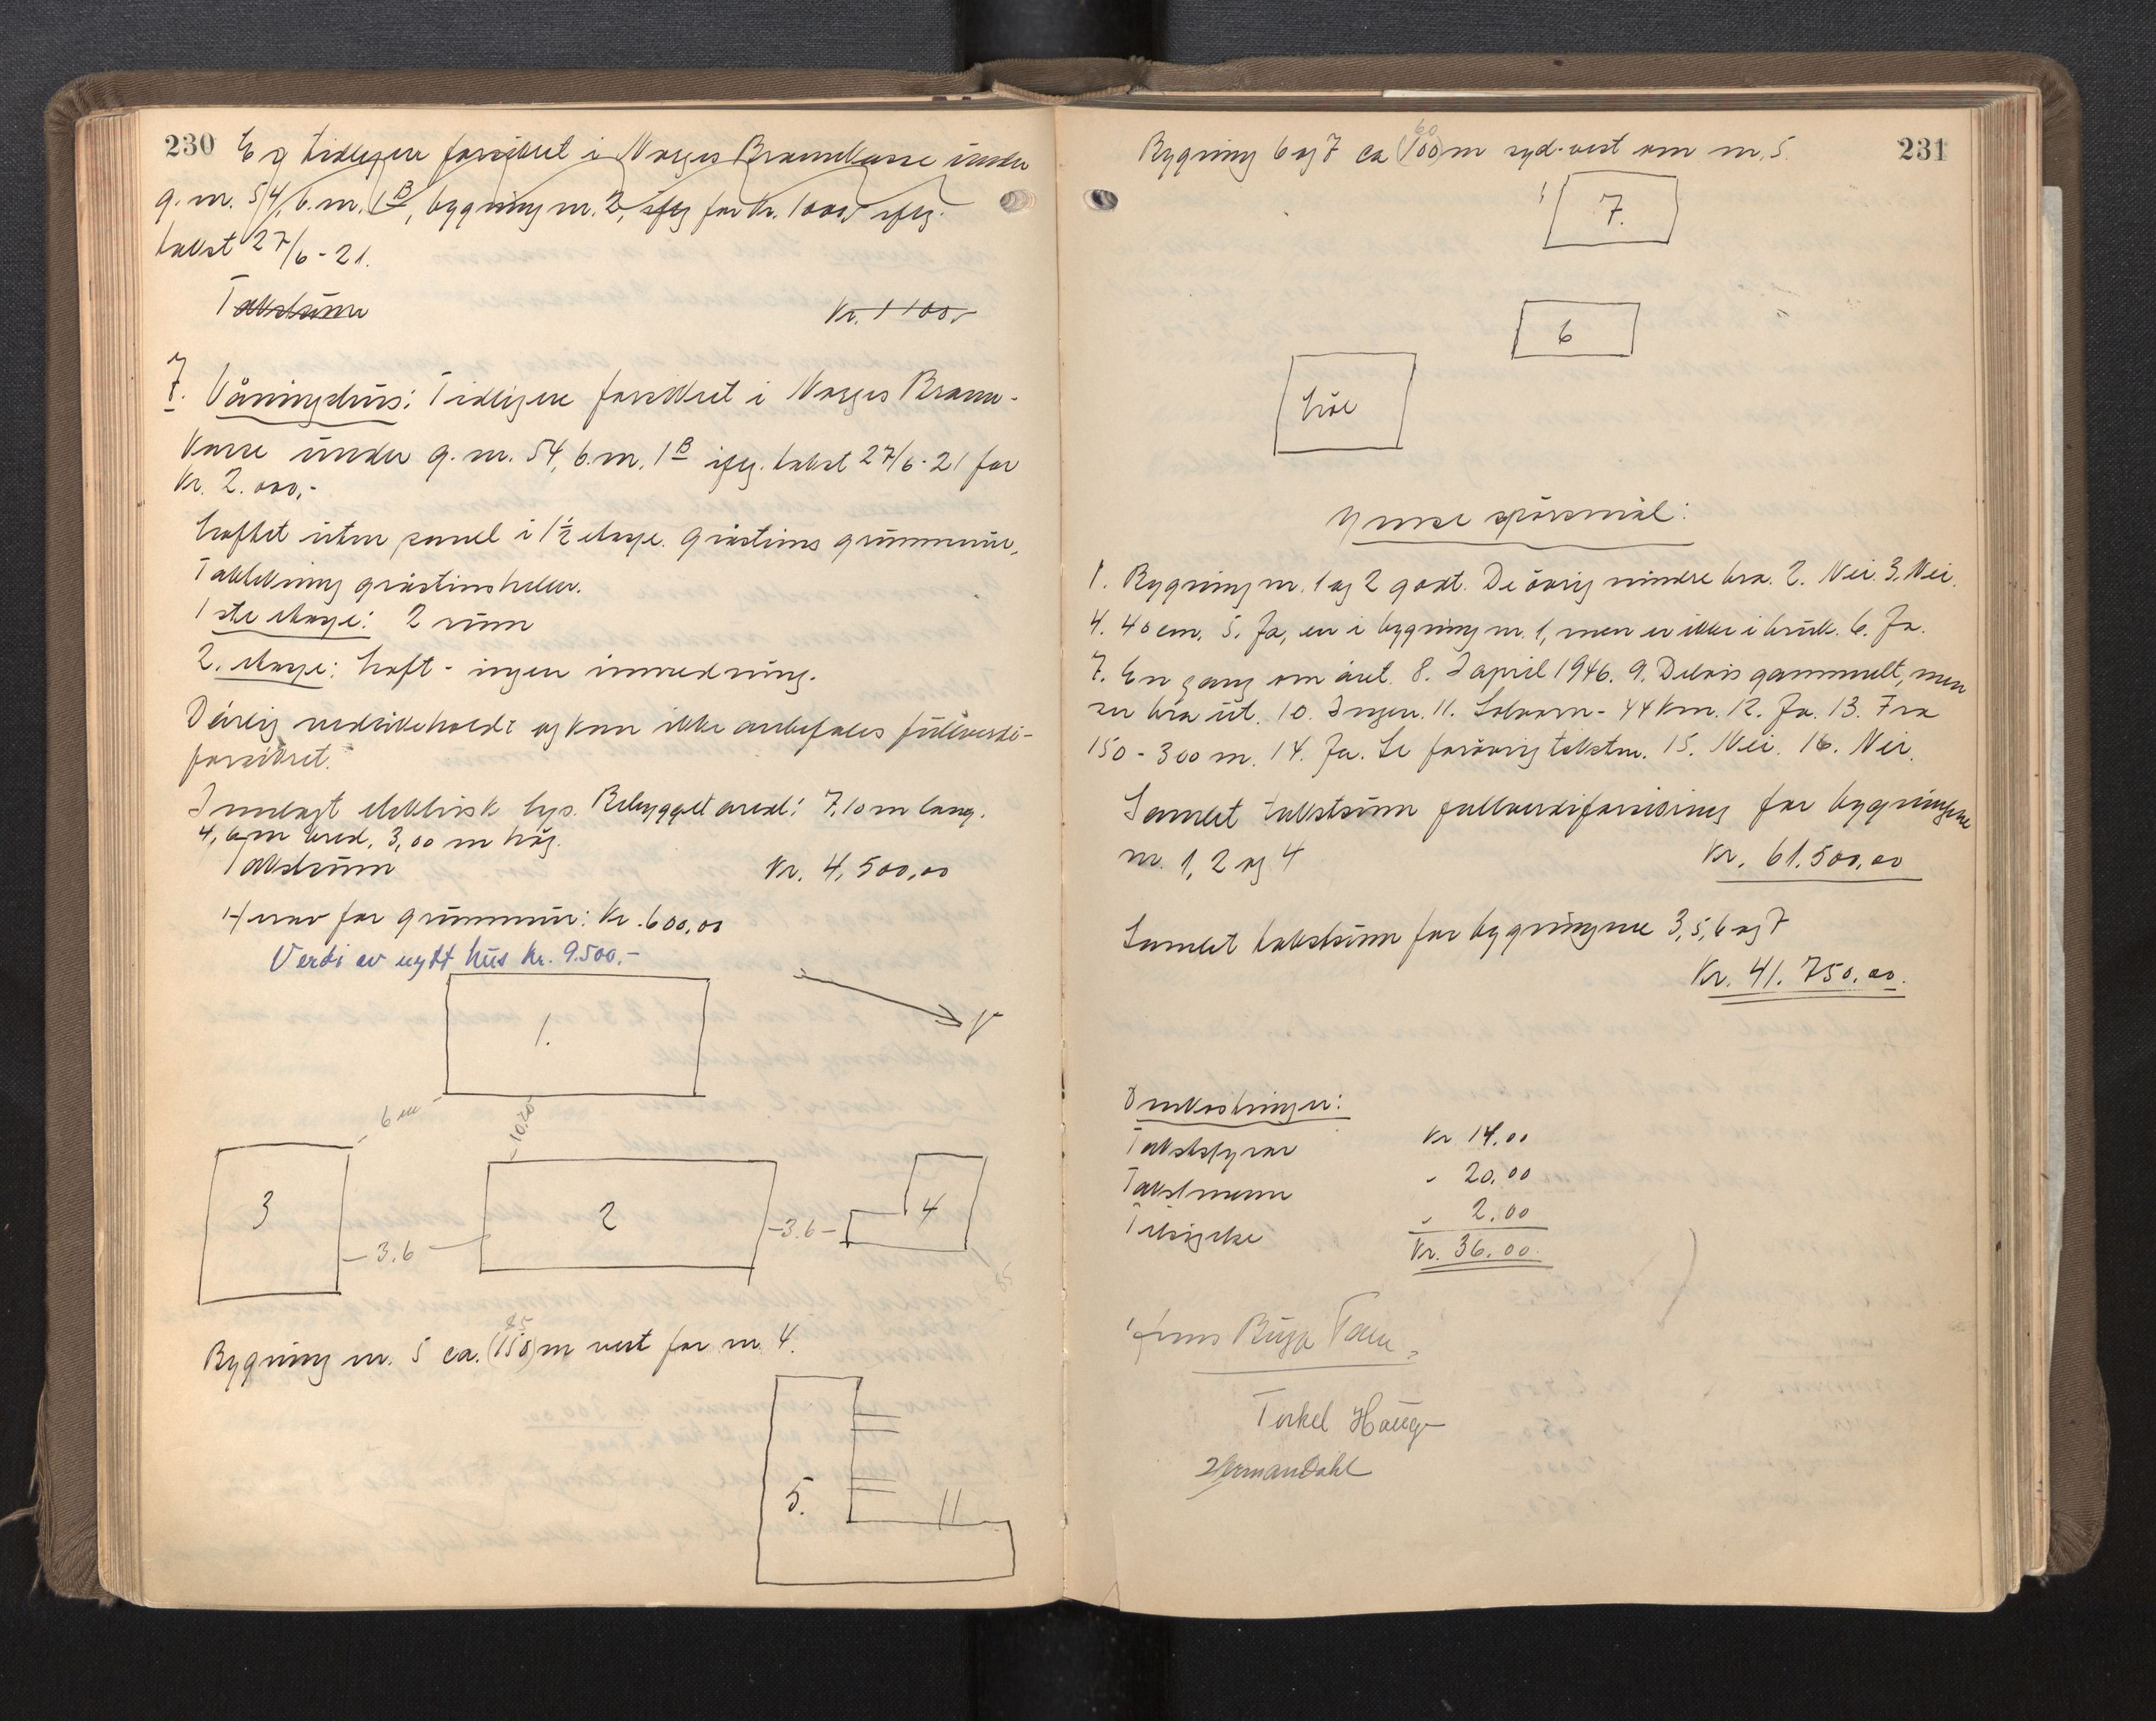 230
Er tidligere forsikret i Norges Brannkasse under
g.nr. 54, b.nr. 1B, bygning nr. 2, for kr. 1000,- ifg.
takst 27/6-21.
Takstsum Kr. 1100,-
7. Våningshus: Tidligere forsikret i Norges Brann-
kasse under g.nr. 54, b.nr. 1B ifg. takst 27/6-21 for
kr. 2.000,-
Laftet uten panel i 1½ etasje. Gråsteins grunnmur,
Taktekning gråsteinsheller.
1ste etasje: 2 rum
2. etasje: Loft - ingen innredning.
Dårlig vedlikeholdt og kan ikke anbefales fullverdi-
forsikret.
Innlagt elektrisk lys. Bebygget areal: 7,10 m lang.
4,60 m bred, 3,00 m høg.
Takstsum Kr. 4,500,00
Herav for grunnmur: kr. 600,00
Verdi av nytt hus kr. 9.500.-
N
1.
6 m
10.20
3
3.6
2
3.6
4
85
85
Bygning nr. 5 ca. (150) m vest for nr. 4.
5.
231
60
Bygning 6 og 7 ca (100) m syd-vest om nr. 5.
7.
6
Löe
Ymse spörsmål:
1. Bygning nr. 1 og 2 godt. De övrig mindre bra. 2. Nei. 3. Nei.
4. 40 cm. 5. Ja, en i bygning nr. 1, men er ikke i bruk. 6. Ja.
7. En gang om året. 8. I april 1946. 9. Delvis gammelt, men
ser bra ut. 10. Ingen. 11. Solvorn - 44 km. 12. Ja. 13. Fra
150 - 300 m. 14. Ja. Se forövrig teksten. 15. Nei. 16. Nei.
Samlet takstsum fullverdiforsikring for bygningene
nr. 1, 2 og 4 Kr. 61.500,00
Samlet takstsum for bygningene 3, 5, 6 og 7
Kr. 41.750.00.
Omkostninger:
Takststyrar Kr 14.00
Takstmenn " 20.00
" 2.00
Kr. 36.00.
Torkel Haug
Herman Dahl